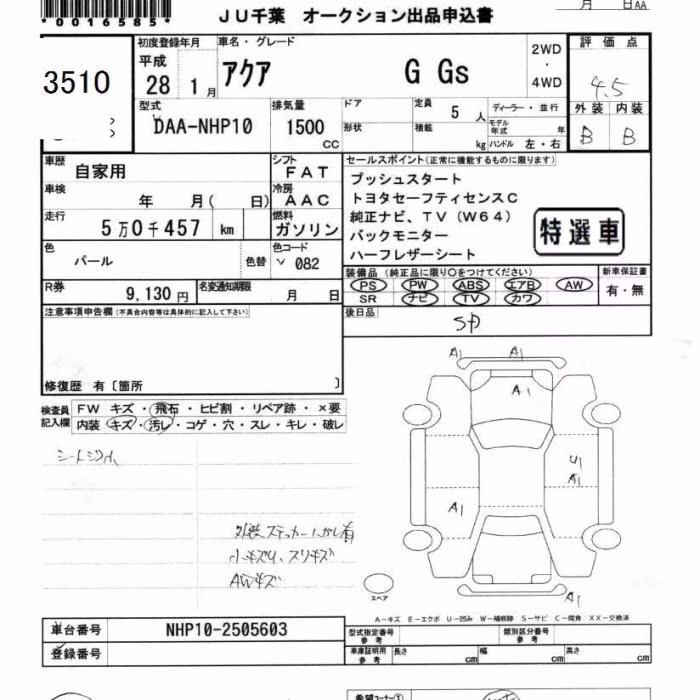 *0016585*
月 日 AA
JU千葉 オークション出品申込書
3510
初度登録年月 平成 28 1月
車名・グレード アクア G Gs
2WD ・ 4WD
評価点 4.5
型式 DAA-NHP10
排気量 1500 CC
ドア
形状
定員 5 人
積載 kg
ディーラー・並行
モデル年式 年
ハンドル 左・右
外装 内装
B B
車歴 自家用
シフト FAT
車検 年 月( 日)
冷房 AAC
走行 5万0千457 km
燃料 ガソリン
色 パール 色替
色コード 082
R券 9,130円
名変通知期限 月 日
セールスポイント(正常に機能するものに限ります)
プッシュスタート
トヨタセーフティセンスC
純正ナビ、TV(W64)
バックモニター
ハーフレザーシート
特選車
装備品 (純正品に限り○をつけてください)
PS PW ABS エアB AW
SR ナビ TV カワ
新車保証書
有・無
後日品
注意事項申告欄(不具合内容等は具体的に記入して下さい)
修復歴 有〔箇所 〕
検査員記入欄
FW キズ・飛石・ヒビ割・リペア跡・×要
内装 キズ・汚レ・コゲ・穴・スレ・キレ・破レ
A1 A1
A1
U1
A1
A1
A1
小キズU、スリキズ
AWキズ
スペア
A-キズ E-エクボ U-凹み W-補修跡 S-サビ C-腐食 XX-交換済
車台番号 NHP10-2505603
登録番号
型式指定番号 参考
類別区分番号 参考
車庫証明用 参考 長さ cm 幅 cm 高さ cm
希望コーナー①